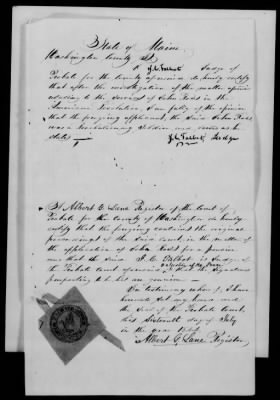 State of Maine
Washington County ss.
I J. C. Talbot Judge of
Probate for the County aforesaid do hereby certify
that after the investigation of the matter
according to the Service of John in the
American Revolution I am fully of the opinion
that the foregoing applicant, the said John
was a Revolutionary Soldier and served as he
states —
J. C. Talbot Judge
I Albert G. Lane Register of the Court of
Probate for the County of Washington do hereby
certify that the foregoing contains the original
proceedings of the said Court, in the matter of
the application of John for a pension
and that the said J. C. Talbot is Judge of
the Probate Court aforesaid & that the Signature
purporting to be his is genuine —
In testimony whereof I have
hereunto set my hand and
the Seal of the Probate Court,
this Sixteenth day of July
in the year
Albert G. Lane Register